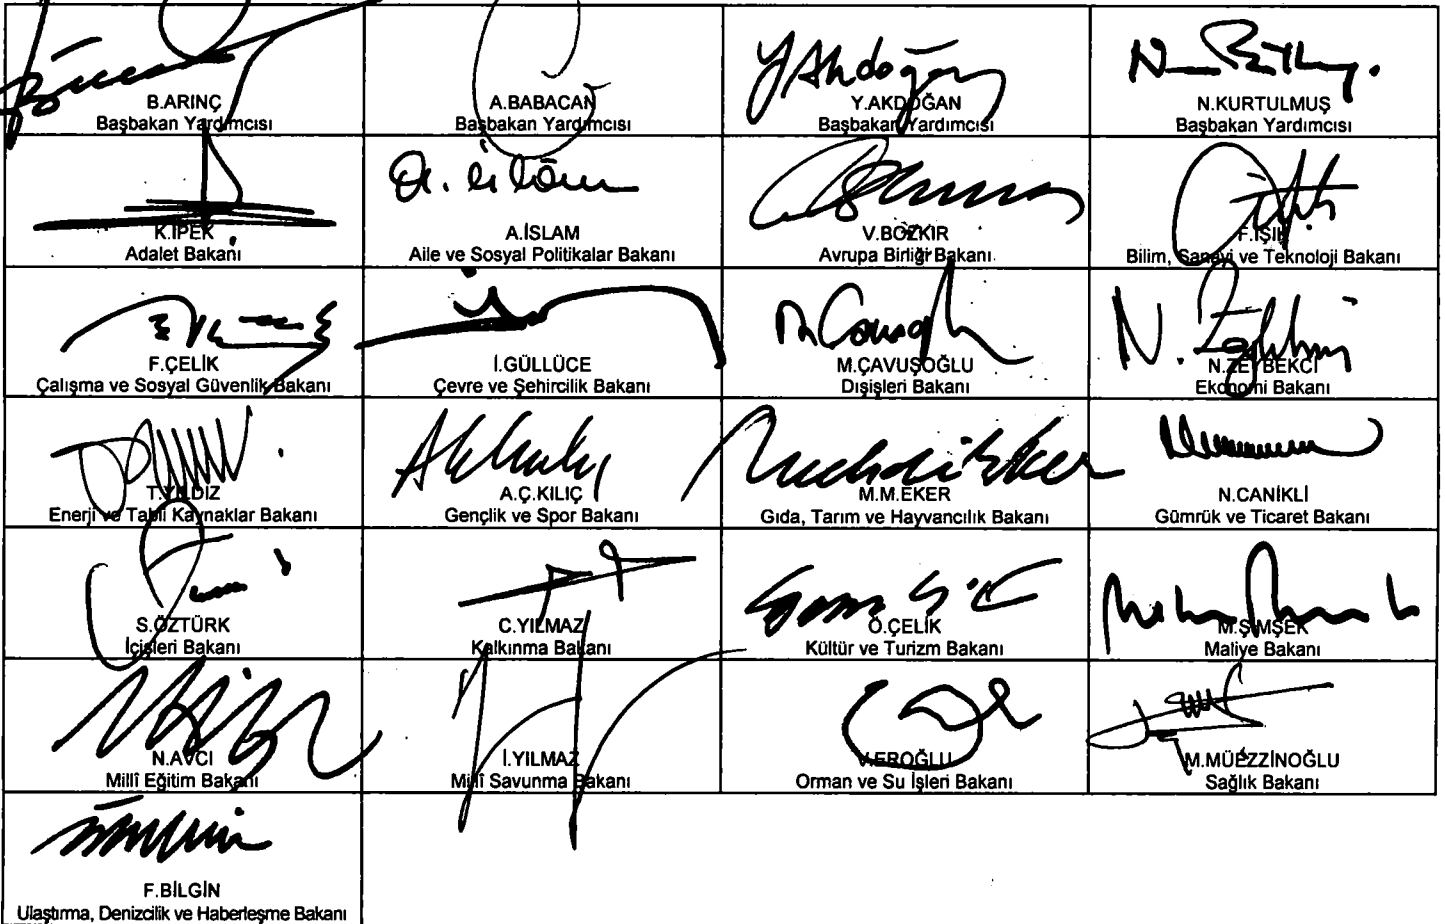 B.ARINÇ
Başbakan Yardımcısı
A.BABACAN
Başbakan Yardımcısı
Y.AKDOĞAN
Başbakan Yardımcısı
N.KURTULMUŞ
Başbakan Yardımcısı
K.İPEK
Adalet Bakanı
A.İSLAM
Aile ve Sosyal Politikalar Bakanı
V.BOZKIR
Avrupa Birliği Bakanı
F.IŞIK
Bilim, Sanayi ve Teknoloji Bakanı
F.ÇELİK
Çalışma ve Sosyal Güvenlik Bakanı
İ.GÜLLÜCE
Çevre ve Şehircilik Bakanı
M.ÇAVUŞOĞLU
Dışişleri Bakanı
N.ZEYBEKCİ
Ekonomi Bakanı
T.YILDIZ
Enerji ve Tabii Kaynaklar Bakanı
A.Ç.KILIÇ
Gençlik ve Spor Bakanı
M.M.EKER
Gıda, Tarım ve Hayvancılık Bakanı
N.CANİKLİ
Gümrük ve Ticaret Bakanı
S.ÖZTÜRK
İçişleri Bakanı
C.YILMAZ
Kalkınma Bakanı
Ö.ÇELİK
Kültür ve Turizm Bakanı
M.ŞİMŞEK
Maliye Bakanı
N.AVCI
Millî Eğitim Bakanı
İ.YILMAZ
Millî Savunma Bakanı
V.EROĞLU
Orman ve Su İşleri Bakanı
M.MÜEZZİNOĞLU
Sağlık Bakanı
F.BİLGİN
Ulaştırma, Denizcilik ve Haberleşme Bakanı